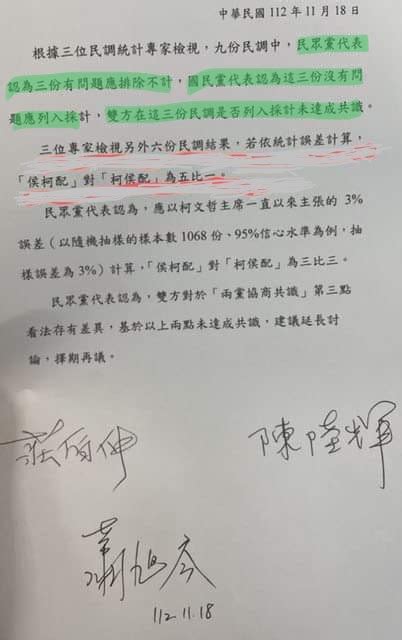 中華民國 112 年 11 月 18 日
根據三位民調統計專家檢視，九份民調中，民眾黨代表
認為三份有問題應排除不計，國民黨代表認為這三份沒有問
題應列入採計，雙方在這三份民調是否列入採計未達成共識。
三位專家檢視另外六份民調結果，若依統計誤差計算，
「侯柯配」對「柯侯配」為五比一。
民眾黨代表認為，應以柯文哲主席一直以來主張的 3%
誤差（以隨機抽樣的樣本數 1068 份、95%信心水準為例，抽
樣誤差為 3%）計算，「侯柯配」對「柯侯配」為三比三。
民眾黨代表認為，雙方對於「兩黨協商共識」第三點
看法存有差異，基於以上兩點未達成共識，建議延長討
論，擇期再議。
莊伯仲
陳陸輝
蕭旭岑
112.11.18